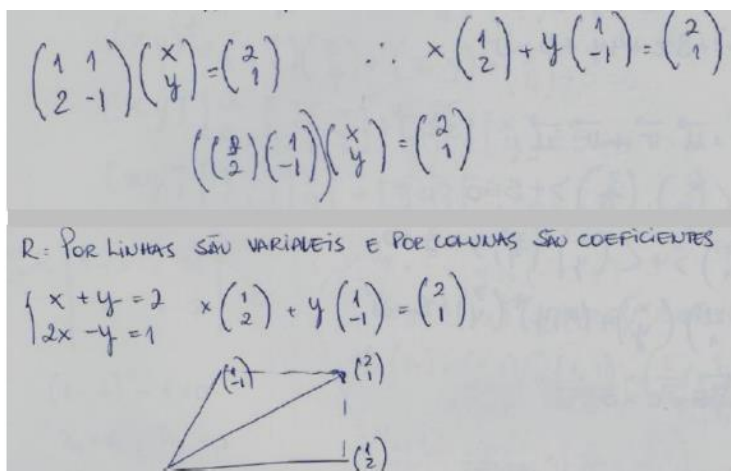 (1 1 2 -1)(x y) = (2 1) ∴ x(1 2) + y(1 -1) = (2 1)
((2)(1 -1))(x y) = (2 1)
R: POR LINHAS SÃO VARIAVEIS E POR COLUNAS SÃO COEFICIENTES
{ x + y = 2 x(1 2) + y(1 -1) = (2 1)
2x - y = 1
(1 -1) (2 1)
(1 2)